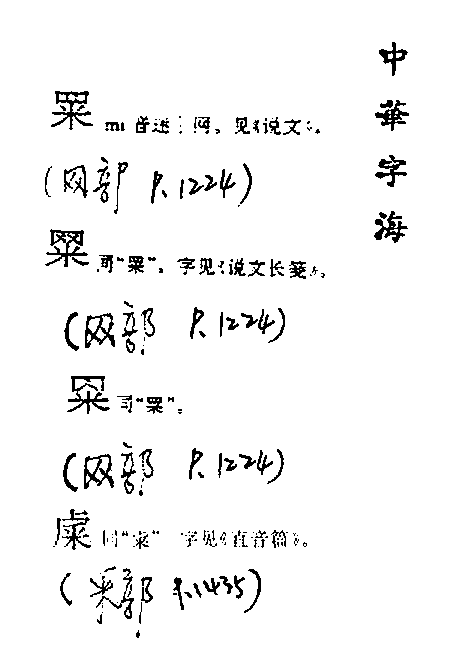 中華字海
䍘 mi 音迷 网。见《说文》。
(网部 P.1224)
同“䍘”。字见《说文长笺》。
(网部 P.1224)
同“䍘”。
(网部 P.1224)
同 字见《直音篇》。
(釆部 P.1435)